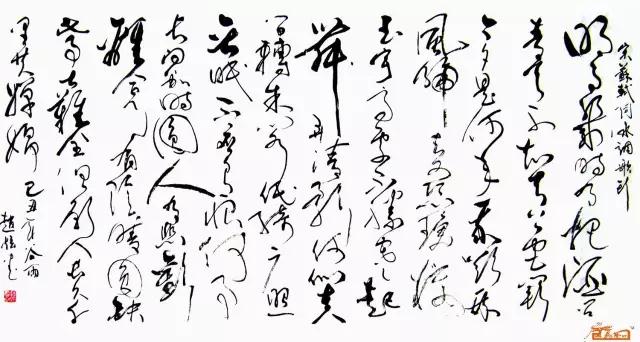 宋蘇軾詞水调歌头
明月幾時有把酒问
青天不知天上宫阙
今夕是何年我欲乘
風歸去又恐瓊楼
玉宇高處不勝寒起
舞弄清影何似在人
间轉朱阁低绮户照
無眠不應有恨何事
长向别時圓人有悲歡
離合月有陰晴圓缺
此事古難全但願人长久千
里共嬋娟 己丑年谷雨
趙